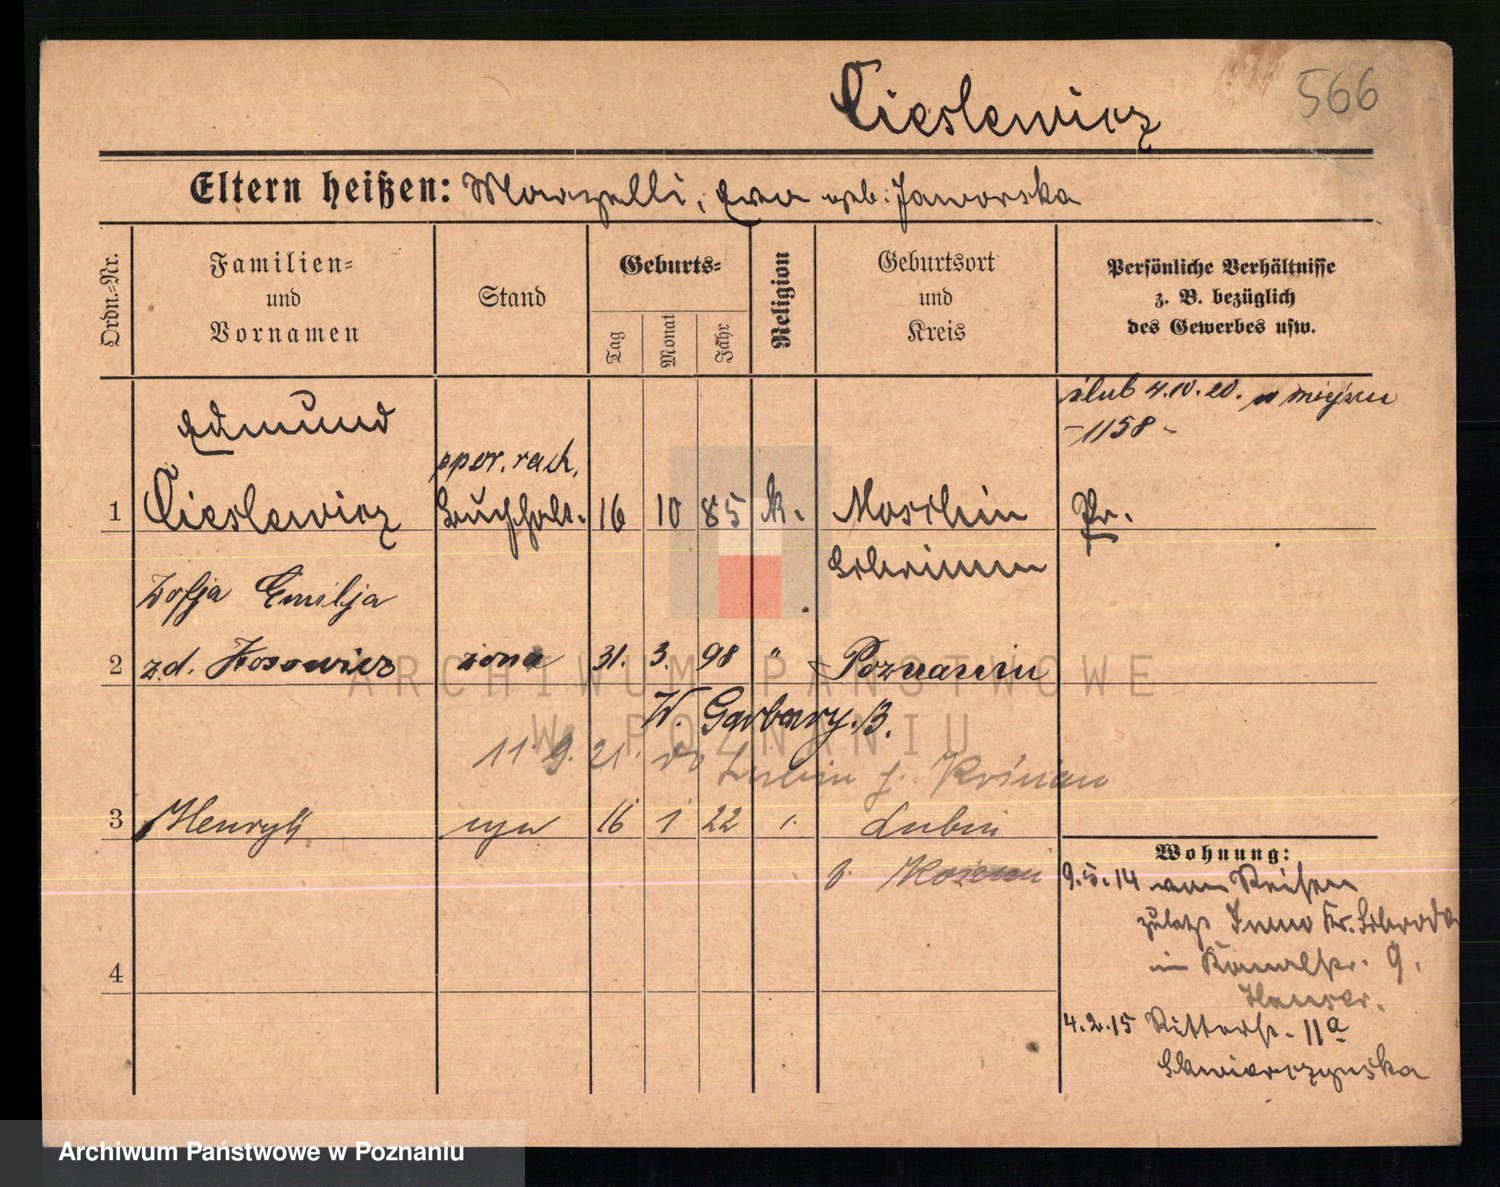 566
Cieslewicz
Eltern heißen: Marzelli, Ewa geb: Jaworska
Ordn.-Nr.
Familien-
und
Vornamen
Stand
Geburts-
Tag
Monat
Jahr
Religion
Geburtsort
und
Kreis
Persönliche Verhältnisse
z. B. bezüglich
des Gewerbes usw.
ślub 4.IV.20. w miejscu
-1158-
Edmund
ppor. rach.
1 Cieslewicz Buchhalt. 16 10 85 k. Moschin Pr.
Schrimm
Zofja Emilja
2 z.d. Kosowicz żona 31. 3. 98 " Poznaniu
W. Garbary.
11 9. 21. do Lubin p.
3 Henryk syn 16 1 22 Lubin
p.
4
Wohnung:
9.5.14 von Reisen
zuletzt Kr. Schroda
in Kanalstr. 9.
4.2.15 Ritterstr. 11a
Skwierczynska
ARCHIWUM PAŃSTWOWE
W POZNANIU
Archiwum Państwowe w Poznaniu